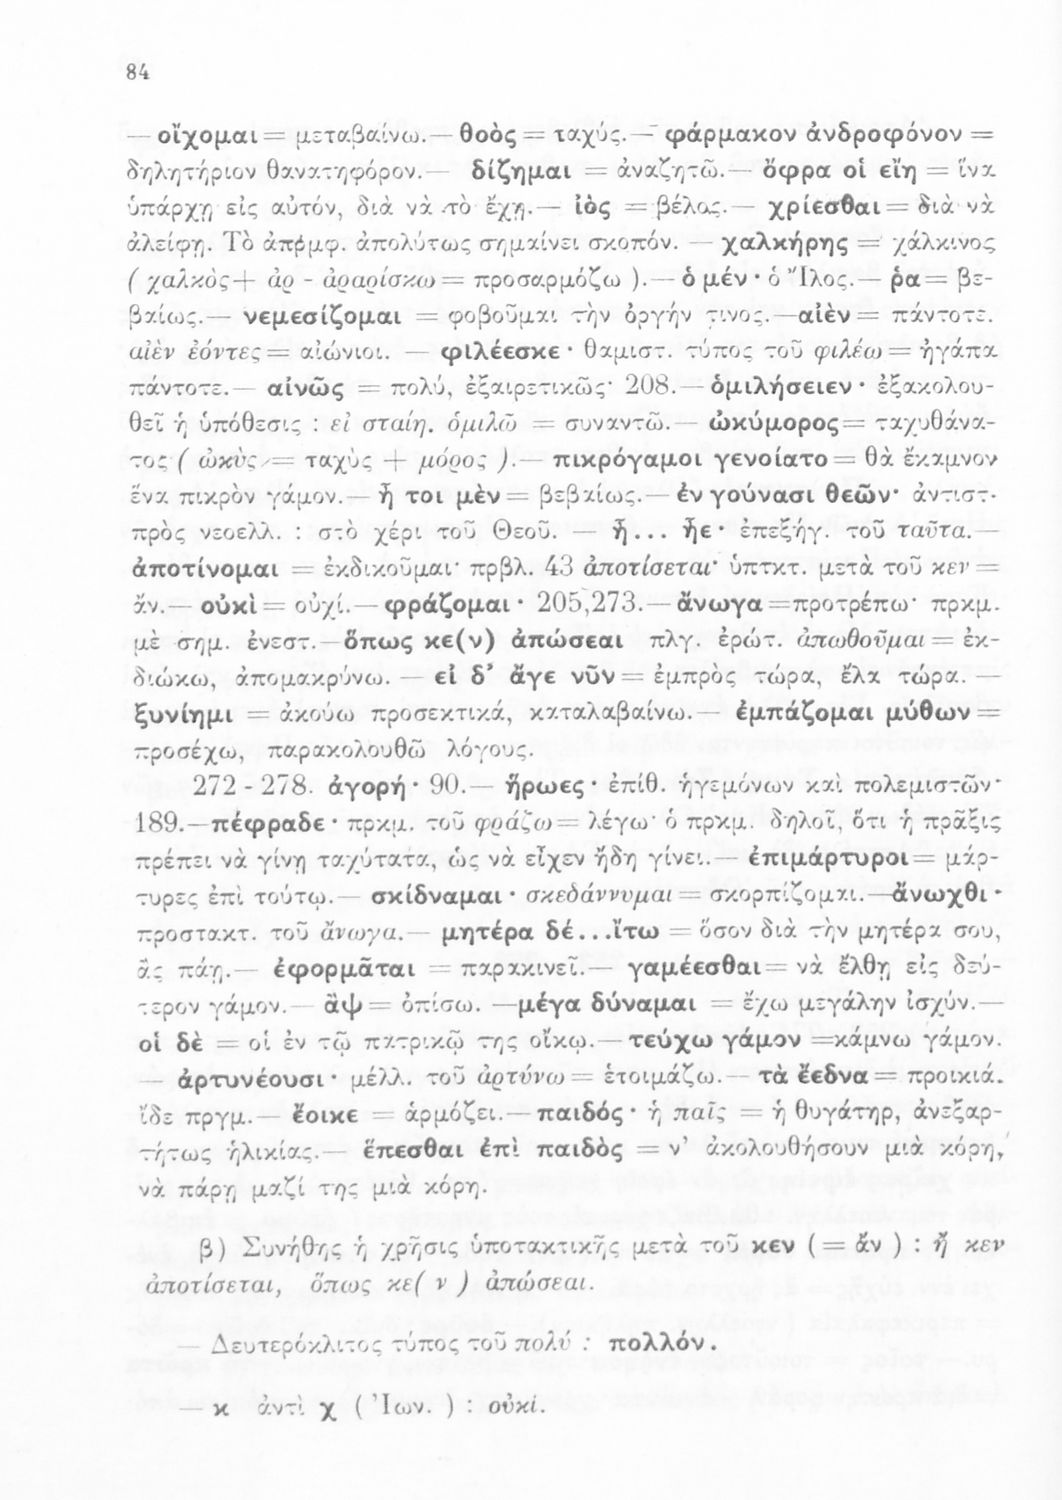 84
— οἴχομαι = μεταβαίνω.— θοὸς = ταχύς.— φάρμακον ἀνδροφόνον =
δηλητήριον θανατηφόρον.— δίζημαι = ἀναζητῶ.— ὄφρα οἱ εἴη = ἵνα
ὑπάρχῃ εἰς αὐτόν, διὰ νὰ τὸ ἔχῃ.— ἰὸς = βέλος.— χρίεσθαι = διὰ νὰ
ἀλείφῃ. Τὸ ἀπρμφ. ἀπολύτως σημαίνει σκοπόν. — χαλκήρης = χάλκινος
( χαλκὸς + ἀρ - ἀραρίσκω = προσαρμόζω ).— ὁ μέν · ὁ Ἴλος.— ῥα = βε-
βαίως.— νεμεσίζομαι = φοβοῦμαι τὴν ὀργήν τινος.—αἰὲν = πάντοτε.
αἰὲν ἐόντες = αἰώνιοι. — φιλέεσκε · θαμιστ. τύπος τοῦ φιλέω = ἠγάπα
πάντοτε.— αἰνῶς = πολύ, ἐξαιρετικῶς· 208.— ὁμιλήσειεν · ἐξακολου-
θεῖ ἡ ὑπόθεσις : εἰ σταίη. ὁμιλῶ = συναντῶ.— ὠκύμορος = ταχυθάνα-
τος ( ὠκὺς = ταχὺς + μόρος ).— πικρόγαμοι γενοίατο = θὰ ἔκαμνον
ἕνα πικρὸν γάμον.— ἦ τοι μὲν = βεβαίως.— ἐν γούνασι θεῶν· ἀντιστ.
πρὸς νεοελλ. : στὸ χέρι τοῦ Θεοῦ. — ἢ... ἦε · ἐπεξήγ. τοῦ ταῦτα.—
ἀποτίνομαι = ἐκδικοῦμαι· πρβλ. 43 ἀποτίσεται· ὑπτκτ. μετὰ τοῦ κεν =
ἄν.— οὐκὶ = οὐχί.— φράζομαι · 205,273.— ἄνωγα =προτρέπω· πρκμ.
μὲ σημ. ἐνεστ.—ὅπως κε(ν) ἀπώσεαι πλγ. ἐρώτ. ἀπωθοῦμαι = ἐκ-
διώκω, ἀπομακρύνω. — εἰ δ' ἄγε νῦν = ἐμπρὸς τώρα, ἔλα τώρα. —
ξυνίημι = ἀκούω προσεκτικά, καταλαβαίνω.— ἐμπάζομαι μύθων =
προσέχω, παρακολουθῶ λόγους.
272 - 278. ἀγορή · 90.— ἥρωες · ἐπίθ. ἡγεμόνων καὶ πολεμιστῶν·
189.—πέφραδε · πρκμ. τοῦ φράζω = λέγω· ὁ πρκμ. δηλοῖ, ὅτι ἡ πρᾶξις
πρέπει νὰ γίνῃ ταχύτατα, ὡς νὰ εἶχεν ἤδη γίνει.— ἐπιμάρτυροι = μάρ-
τυρες ἐπὶ τούτῳ.— σκίδναμαι · σκεδάννυμαι = σκορπίζομαι.—ἄνωχθι ·
προστακτ. τοῦ ἄνωγα.— μητέρα δέ...ἴτω = ὅσον διὰ τὴν μητέρα σου,
ἂς πάῃ.— ἐφορμᾶται = παρακινεῖ.— γαμέεσθαι = νὰ ἔλθῃ εἰς δεύ-
τερον γάμον.— ἂψ = ὀπίσω. —μέγα δύναμαι = ἔχω μεγάλην ἰσχύν.—
οἱ δὲ = οἱ ἐν τῷ πατρικῷ της οἴκῳ.— τεύχω γάμον =κάμνω γάμον.
— ἀρτυνέουσι · μέλλ. τοῦ ἀρτύνω = ἑτοιμάζω.— τὰ ἔεδνα = προικιά.
ἴδε πργμ.— ἔοικε = ἁρμόζει.— παιδός · ἡ παῖς = ἡ θυγάτηρ, ἀνεξαρ-
τήτως ἡλικίας.— ἕπεσθαι ἐπὶ παιδὸς = ν' ἀκολουθήσουν μιὰ κόρη,
νὰ πάρῃ μαζί της μιὰ κόρη.
β) Συνήθης ἡ χρῆσις ὑποτακτικῆς μετὰ τοῦ κεν ( = ἄν ) : ἤ κεν
ἀποτίσεται, ὅπως κε( ν ) ἀπώσεαι.
— Δευτερόκλιτος τύπος τοῦ πολύ : πολλόν.
— κ ἀντὶ χ ( Ἰων. ) : οὐκί.